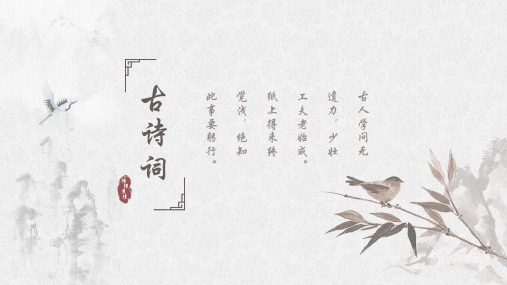 古诗词
古人学问无
遗力，少壮
工夫老始成。
纸上得来终
觉浅，绝知
此事要躬行。